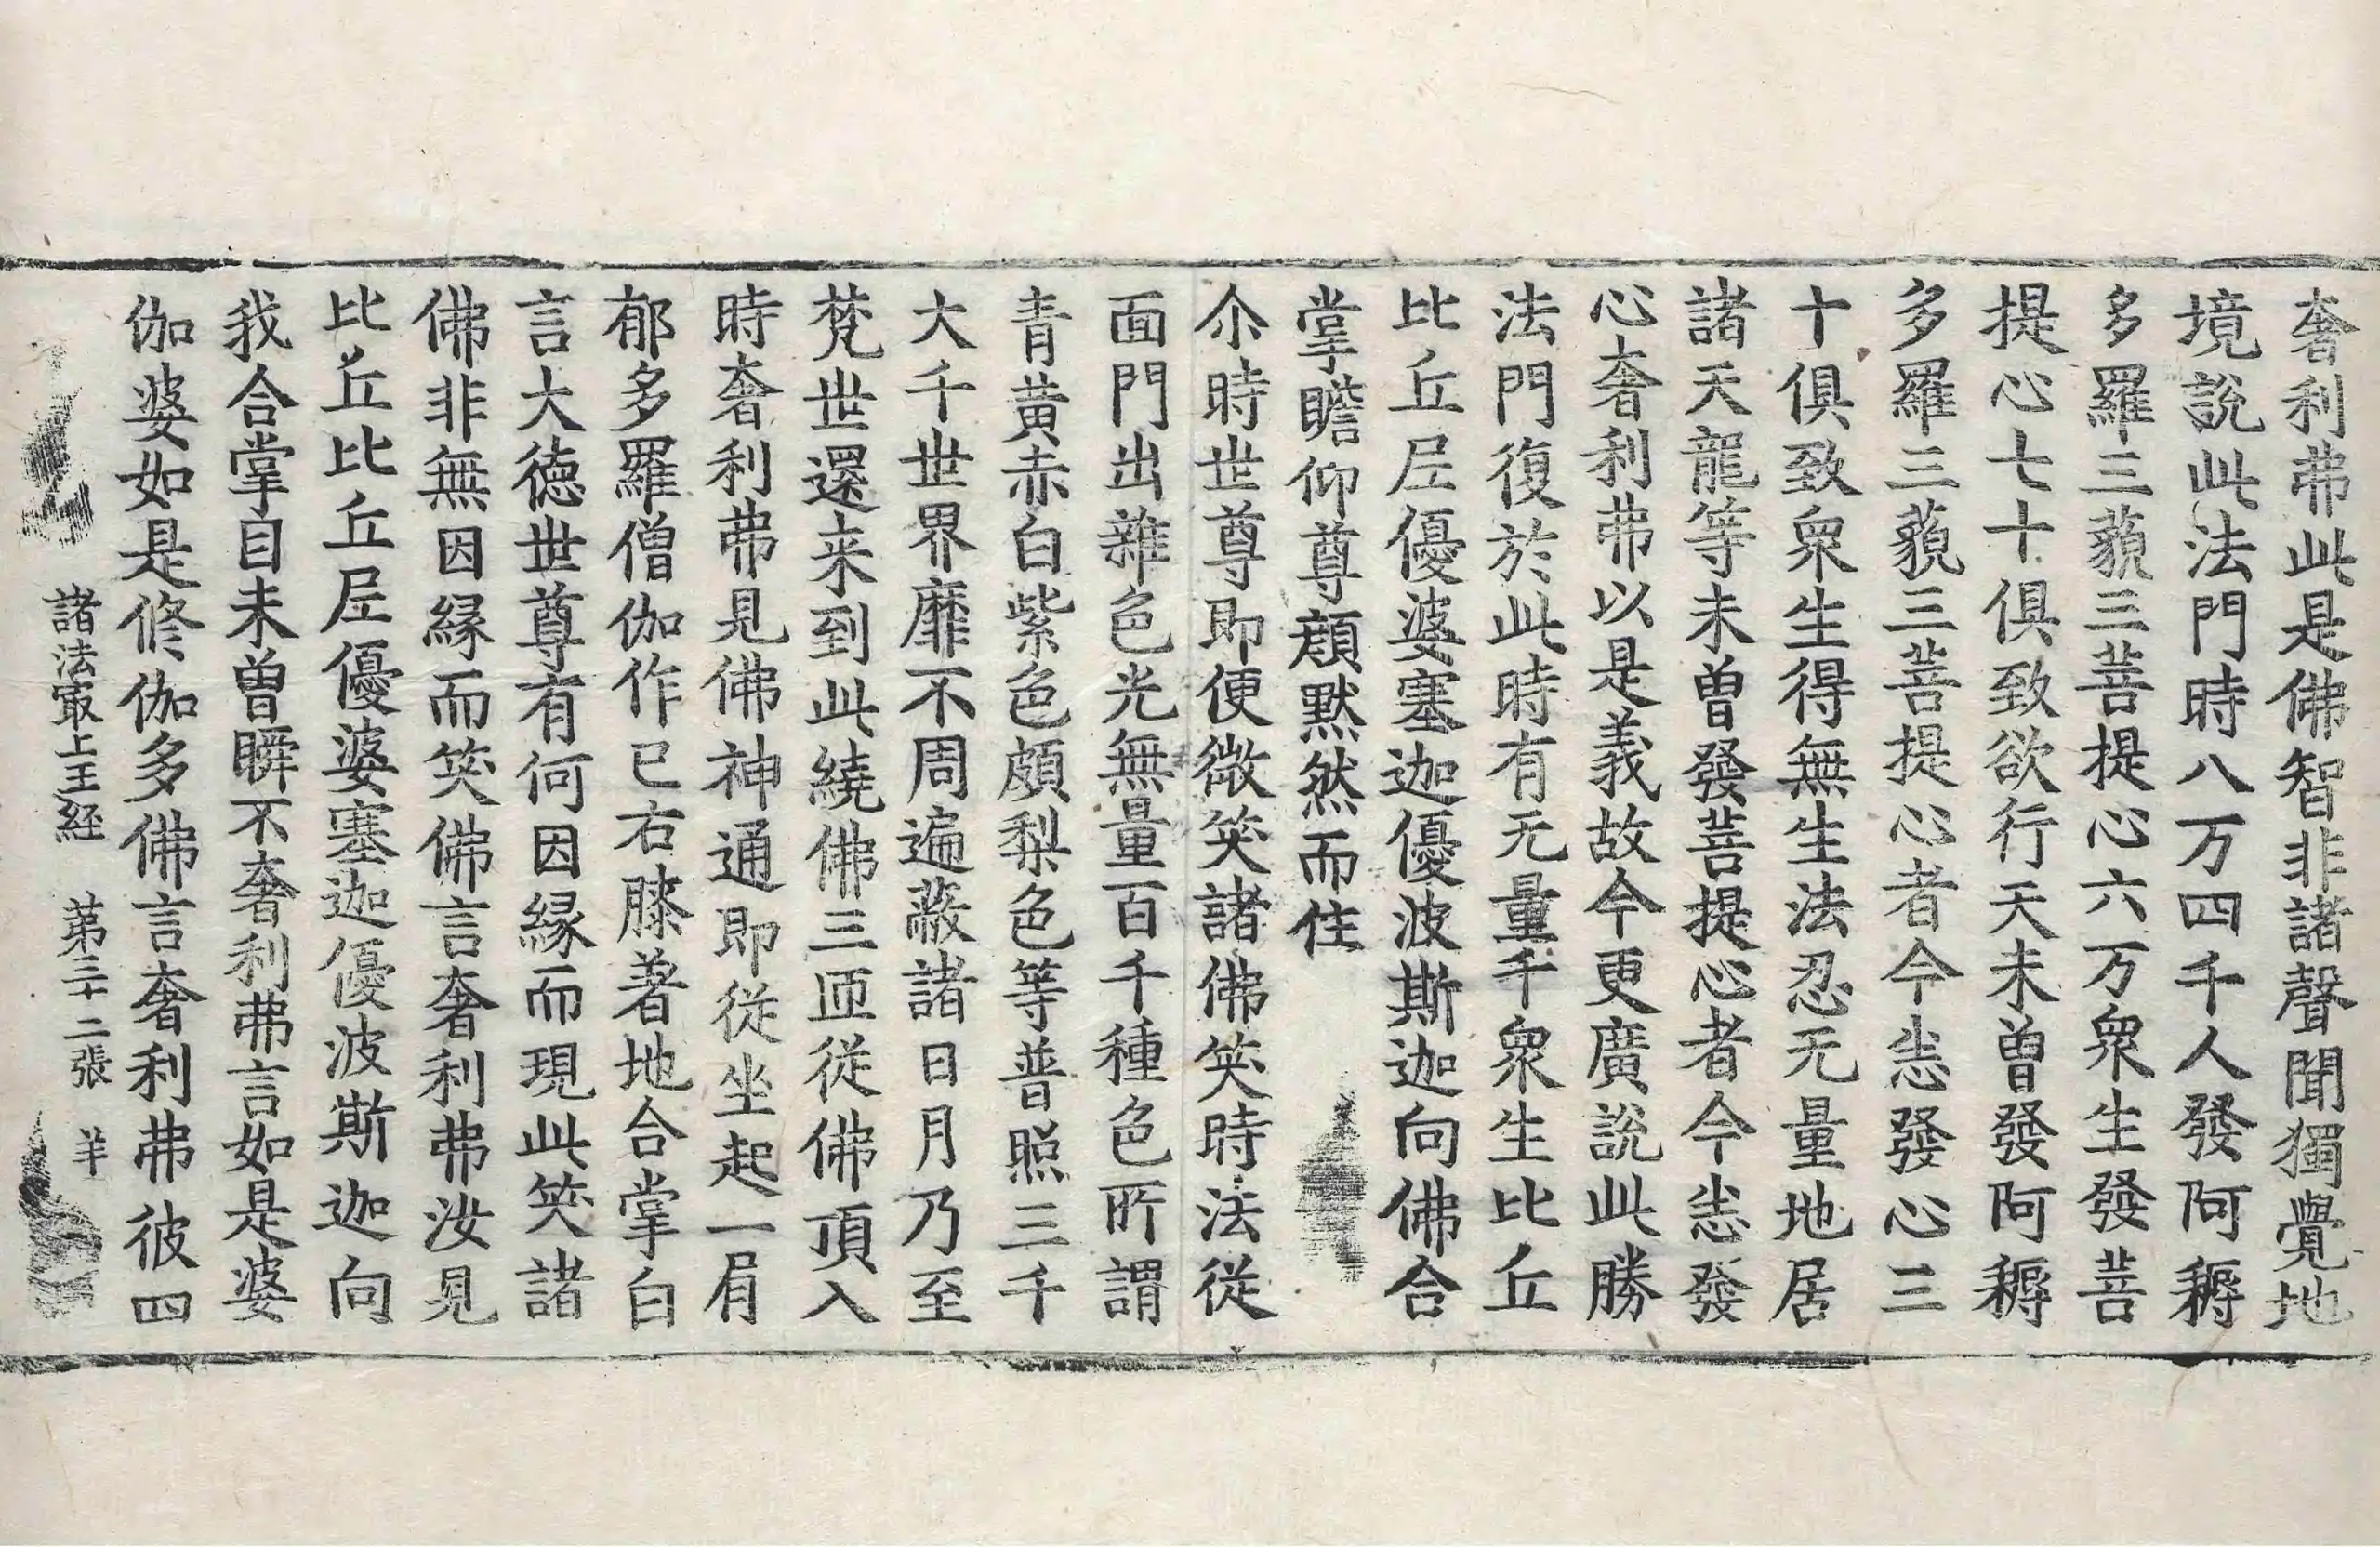 奢利弗此是佛智非諸聲聞獨覺地
境說此法門時八万四千人發阿耨
多羅三藐三菩提心六万衆生發菩
提心七十俱致欲行天未曾發阿耨
多羅三藐三菩提心者今恚發心三
十俱致衆生得無生法忍无量地居
諸天龍等未曾發菩提心者今恚發
心奢利弗以是義故今更廣說此勝
法門復於此時有无量千衆生比丘
比丘尼優婆塞迦優波斯迦向佛合
掌瞻仰尊顏默然而住
尒時世尊即便微笑諸佛笑時法從
面門出雜色光無量百千種色所謂
青黃赤白紫色頗梨色等普照三千
大千世界靡不周遍蔽諸日月乃至
梵世還来到此繞佛三匝從佛頂入
時奢利弗見佛神通即從坐起一肩
郁多羅僧伽作已右膝著地合掌白
言大德世尊有何因緣而現此笑諸
佛非無因緣而笑佛言奢利弗汝見
比丘比丘尼優婆塞迦優波斯迦向
我合掌自未曾瞬不奢利弗言如是婆
伽婆如是修伽多佛言奢利弗彼四
諸法最上王経 第三十二張 羊